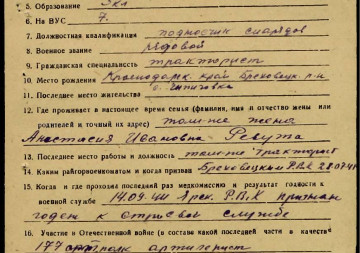 5. Образование 3 кл
6. На ВУС 7.
7. Должностная квалификация подносчик снарядов
8. Военное звание рядовой
9. Гражданская специальность тракторист
10. Место рождения Краснодарск. край Бреховецк. р-н
11. Последнее место жительства
12. Где проживает в настоящее время семья (фамилия, имя и отчество жены или
родителей и точный их адрес) там-же жена
Анастасия Ивановна Ревута
13. Последнее место работы и должность там-же тракторист
14. Каким райгорвоенкоматом и когда призван Бреховецким РВК
15. Когда и где проходил последний раз медкомиссию и результат годности к
военной службе 14.09.44 Брех. РВК признан
годен к строевой службе
16. Участие в Отечественной войне (в составе какой последней части и качестве)
177 артполк артилерист